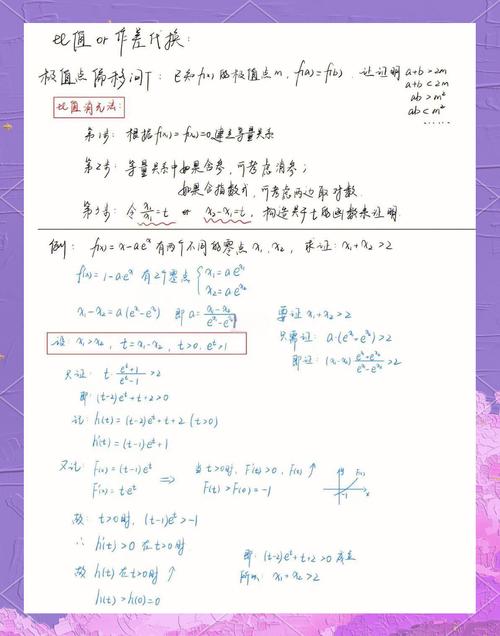 比值 or 作差代换:
极值点偏移问T: 已知f(x)的极值点m, f(a)=f(b). 让证明
a+b>2m
a+b<2m
ab>m²
ab<m²
……
比值消元法:
第1步: 根据f(x₁)=f(x₂)=0建立等量关系
第2步: 等量关系中如果含参,可考虑消参;
如果含指数式,可考虑两边取对数.
第3步: 令x₂/x₁=t or x₂-x₁=t, 构造关于t的函数来证明.
例: f(x)=x-aeˣ有两个不同的零点x₁,x₂, 求证: x₁+x₂>2
f(x)=1-aeˣ 有2个零点 { x₁=ae^x₁
x₂=ae^x₂
x₁-x₂=a(e^x₁-e^x₂) 即a=(x₁-x₂)/(e^x₁-e^x₂)
要证x₁+x₂>2
只需证: a·(e^x₁+e^x₂)>2
即证: (x₁-x₂)(e^x₁+e^x₂)/(e^x₁-e^x₂)>2
设 x₁>x₂, t=x₁-x₂, t>0, eᵗ>1
只证: t·(eᵗ+1)/(eᵗ-1)>2
即: (t-2)eᵗ+t+2>0
记: h(t)=(t-2)eᵗ+t+2 (t>0)
h'(t)=(t-1)eᵗ+1
又记: F(x)=(t-1)eᵗ
F'(x)=teᵗ
⇒ 当t>0时, F'(t)>0, F(x)↑
F(t)>F(0)=-1
F(x)
-1
x
故: t>0时, (t-1)eᵗ>-1
∴ h'(t)>0 在t>0时
故 h(t)在t>0时↑
h(t)>h(0)=0
即: (t-2)eᵗ+t+2>0 成立
所以 x₁+x₂>2